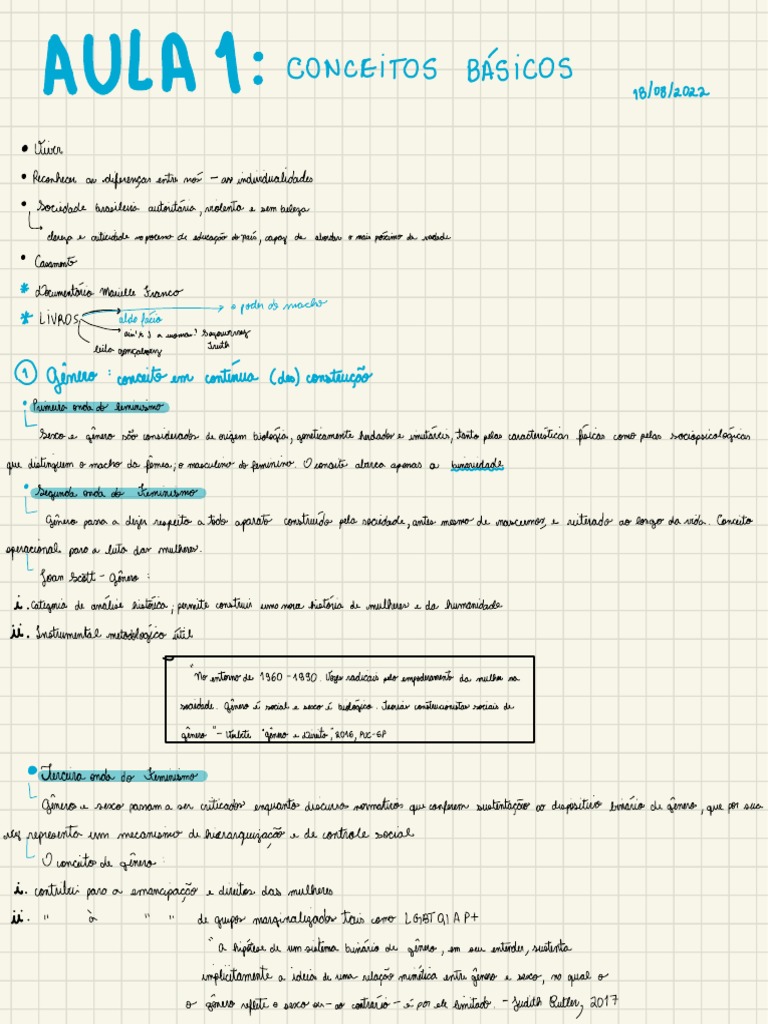 AULA 1: CONCEITOS BÁSICOS
18/08/2022
• Viver
• Reconhecer as diferenças entre nós - as individualidades
• Sociedade brasileira autoritária, violenta e sem beleza
clareza e criticidade no processo de educação do país, capaz de abordar o mais próximo da verdade
• Casamento
* Documentário Marielle Franco
* LIVROS
o poder do macho
alda facio
ain't I a woman? Sojourney Truth
leila gonzales
1 Gênero: conceito em contínua (des) construção
• Primeira onda do feminismo
Sexo e gênero são considerados de origem biológia, geneticamente herdados e imutáveis, tanto pelas características físicas como pelas sociopsicológicas
que distinguem o macho da fêmea; o masculino do feminino. O conceito abarca apenas a binariedade
• Segunda onda do Feminismo
Gênero passa a dizer respeito a todo aparato construído pela sociedade, antes mesmo de nascermos, e reiterado ao longo da vida. Conceito
operacional para a luta das mulheres.
Joan Scott - Gênero:
i. Categoria de análise histórica; permite construir uma nova história de mulheres e da humanidade
ii. Instrumental metodológico útil
"No entorno de 1960-1990. Vozes radicais pelo empoderamento da mulher na
sociedade. Gênero é social e sexo é biológico. Teorias construcionistas sociais de
gênero" - "Gênero e Direito", 2016, PUC-SP
• Terceira onda do Feminismo
Gênero e sexo passam a ser criticados enquanto discursos normativos que conferem sustentação ao dispositivo binário de gênero, que por sua
vez representa um mecanismo de hierarquização e de controle social
O conceito de gênero:
i. contribui para a emancipação e direitos das mulheres
ii. " à " " de grupos marginalizados tais como LGBTQIAP+
"A hipótese de um sistema binário de gênero, em seu entender, sustenta
implicitamente a ideia de uma relação mimética entre gênero e sexo, no qual o
o gênero reflete o sexo ou - ao contrário - é por ele limitado. - Judith Butler, 2017